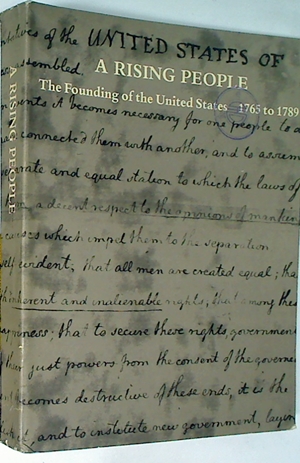 A RISING PEOPLE
UNITED STATES OF
of the
assembled.
A RISING PEOPLE
The Founding of the United States 1765 to 1789
it becomes necessary for one people to
connected them with another, and to assum
and equal station to which the laws of
a decent respect to the opinions of mankin
which impel them to the separation
evident; that all men are created equal; tha
inherent and inalienable rights; that among these
that to secure these rights, government
just powers from the consent of the governe
becomes destructive of these ends, it is the
and to institute new government, layin